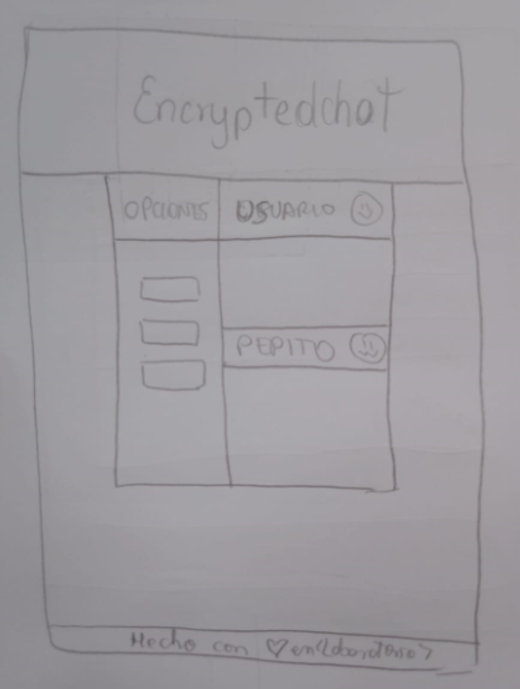 Encryptedchat
OPCIONES USUARIO
PEPITO
Hecho con ♡ en